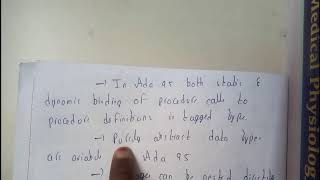 → In Ada 95 both static &
dynamic binding of procedure calls to
procedure definitions is tagged type.
→ Purely abstract data type
are Ada 95
→ can be nested directly
Medical Physiolog